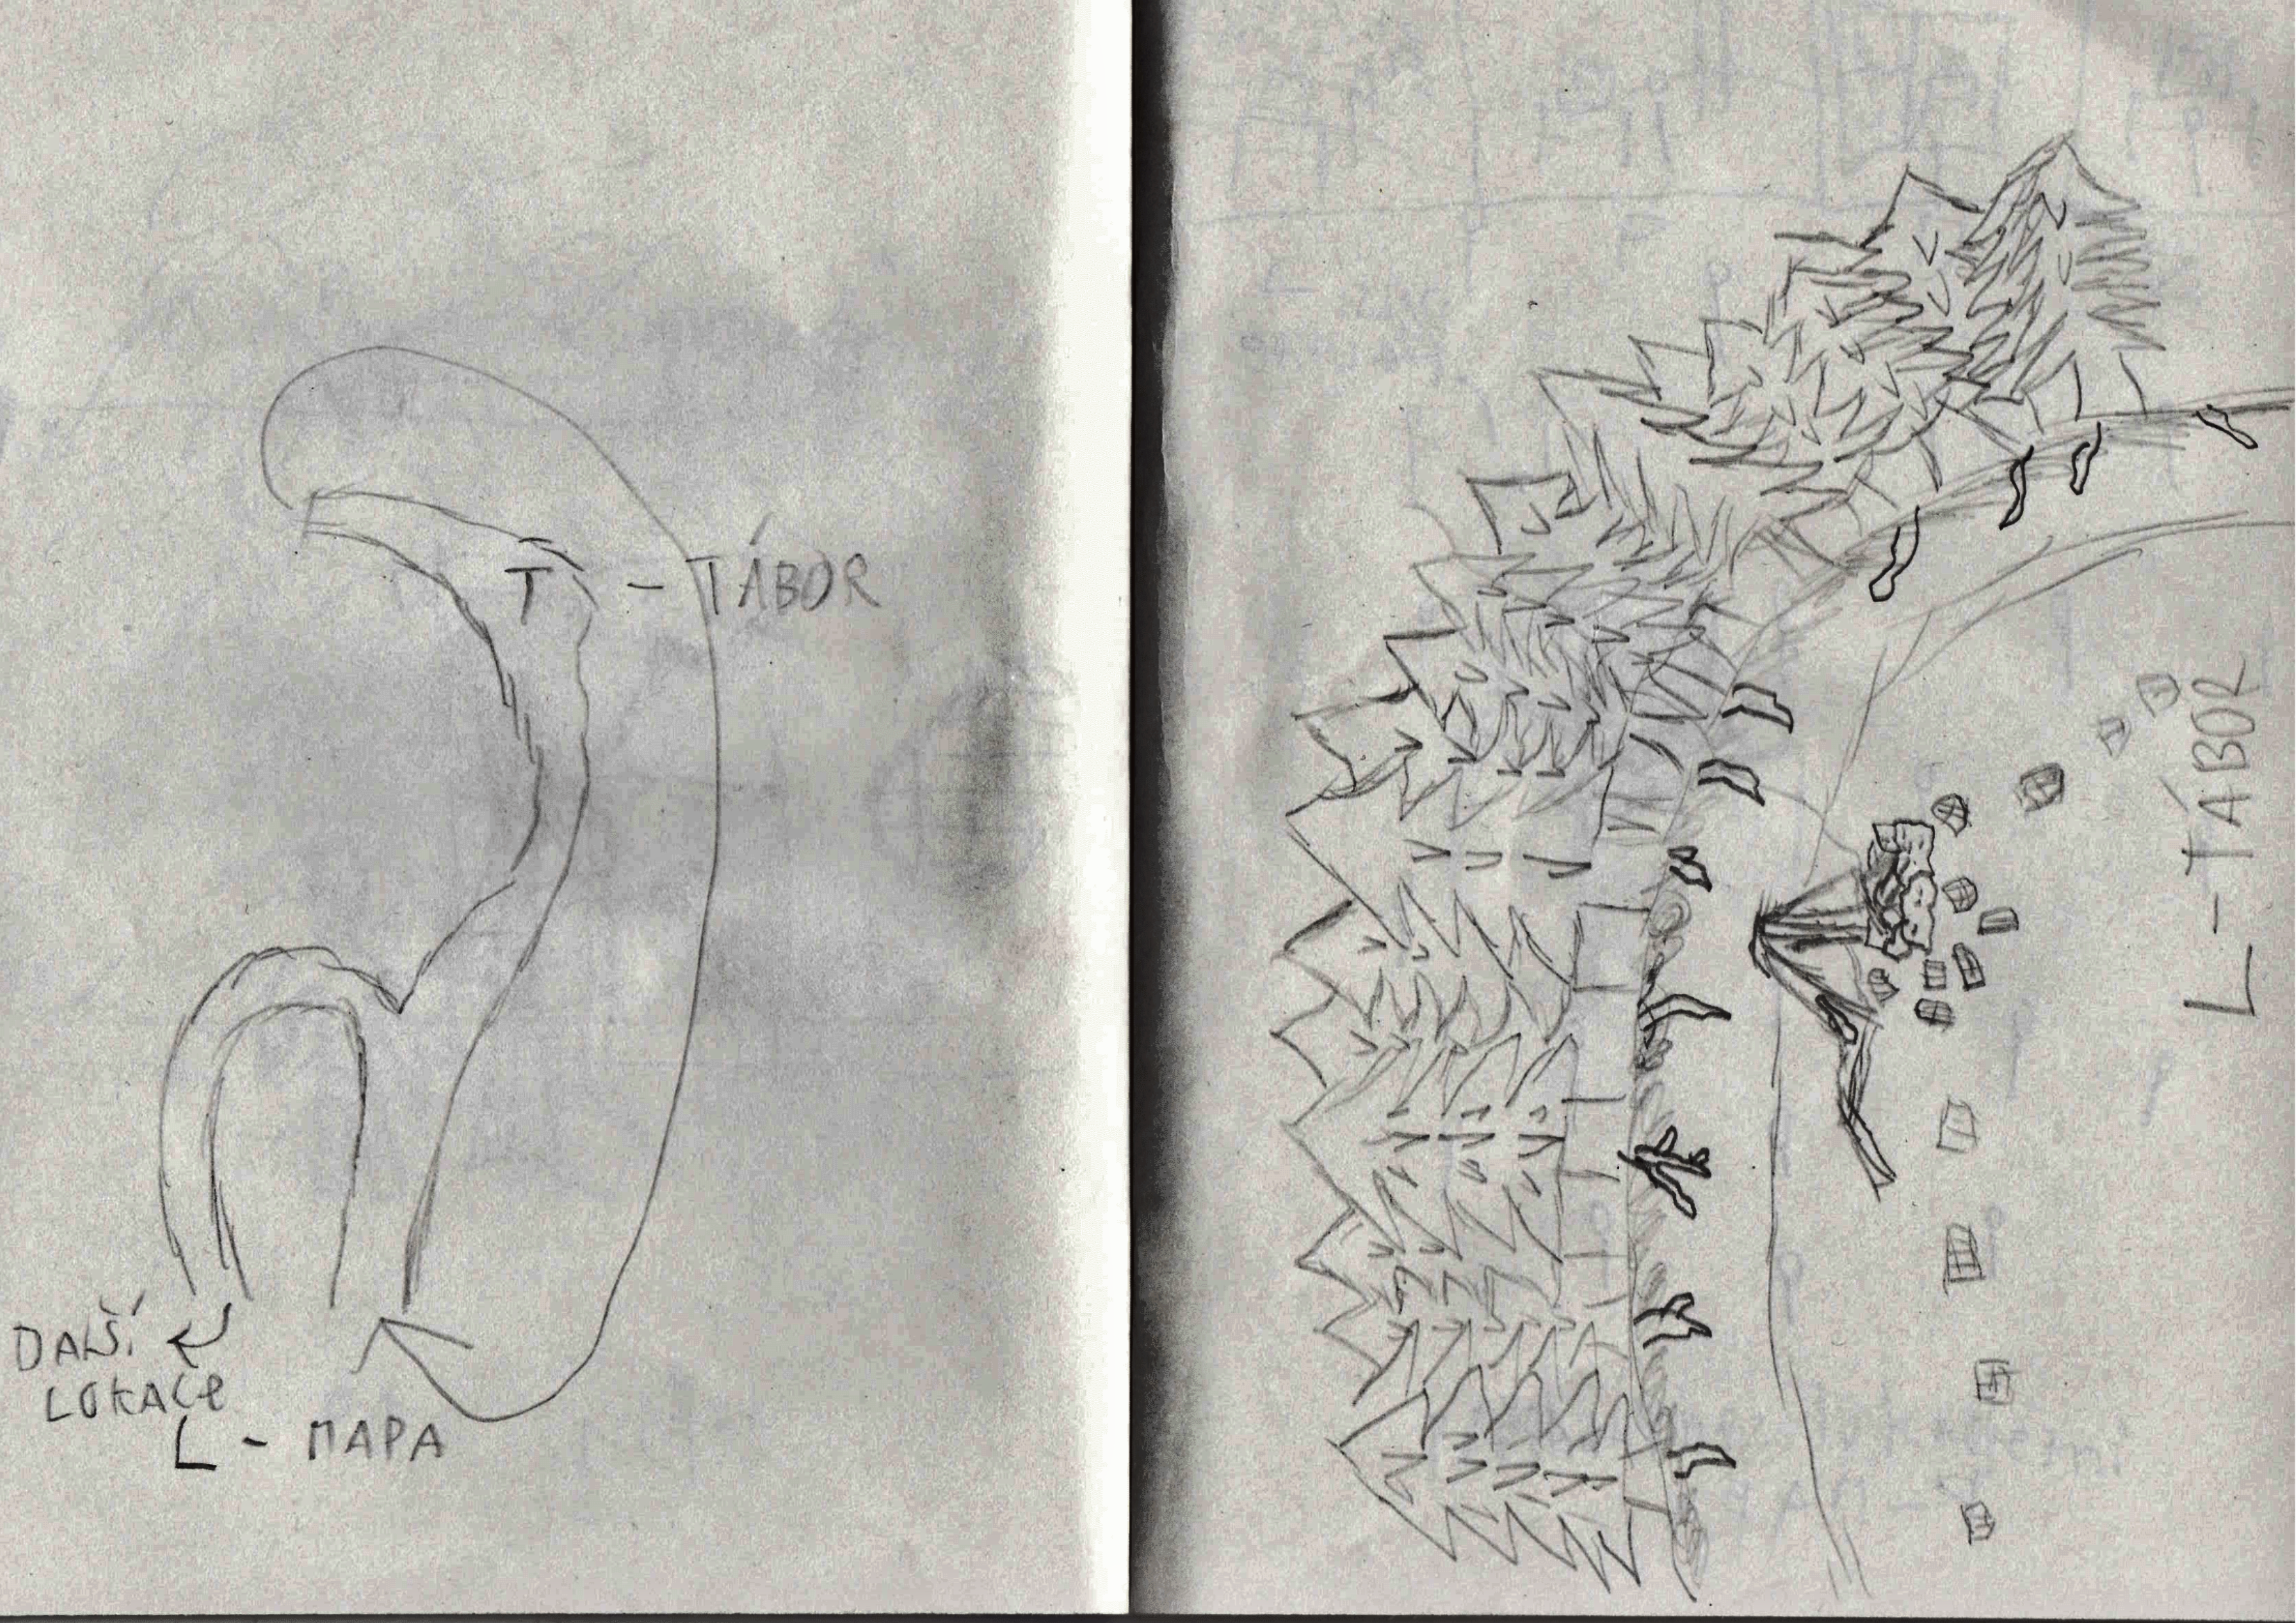 T - TÁBOR
DALŠÍ
LOKACE
L - MAPA
L - TÁBOR